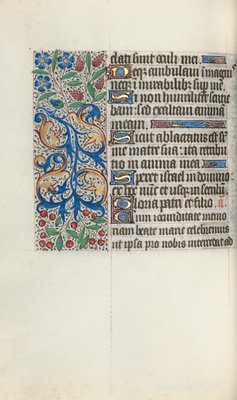 dati sunt oculi mei.
Neqz ambulaui i magnis
neqz i mirabilibz sup me.
Si non humiliter sentie
bam: sed exaltaui anima
meam.
Sicut ablactatus est su
per matre sua: ita retribu
tio in anima mea
Speret israel in domino:
ex hoc nunc et usqz in seculu.
Gloria patri et filio. a.
nam beate marie celebramus
ut ipsa pro nobis intercedat ad